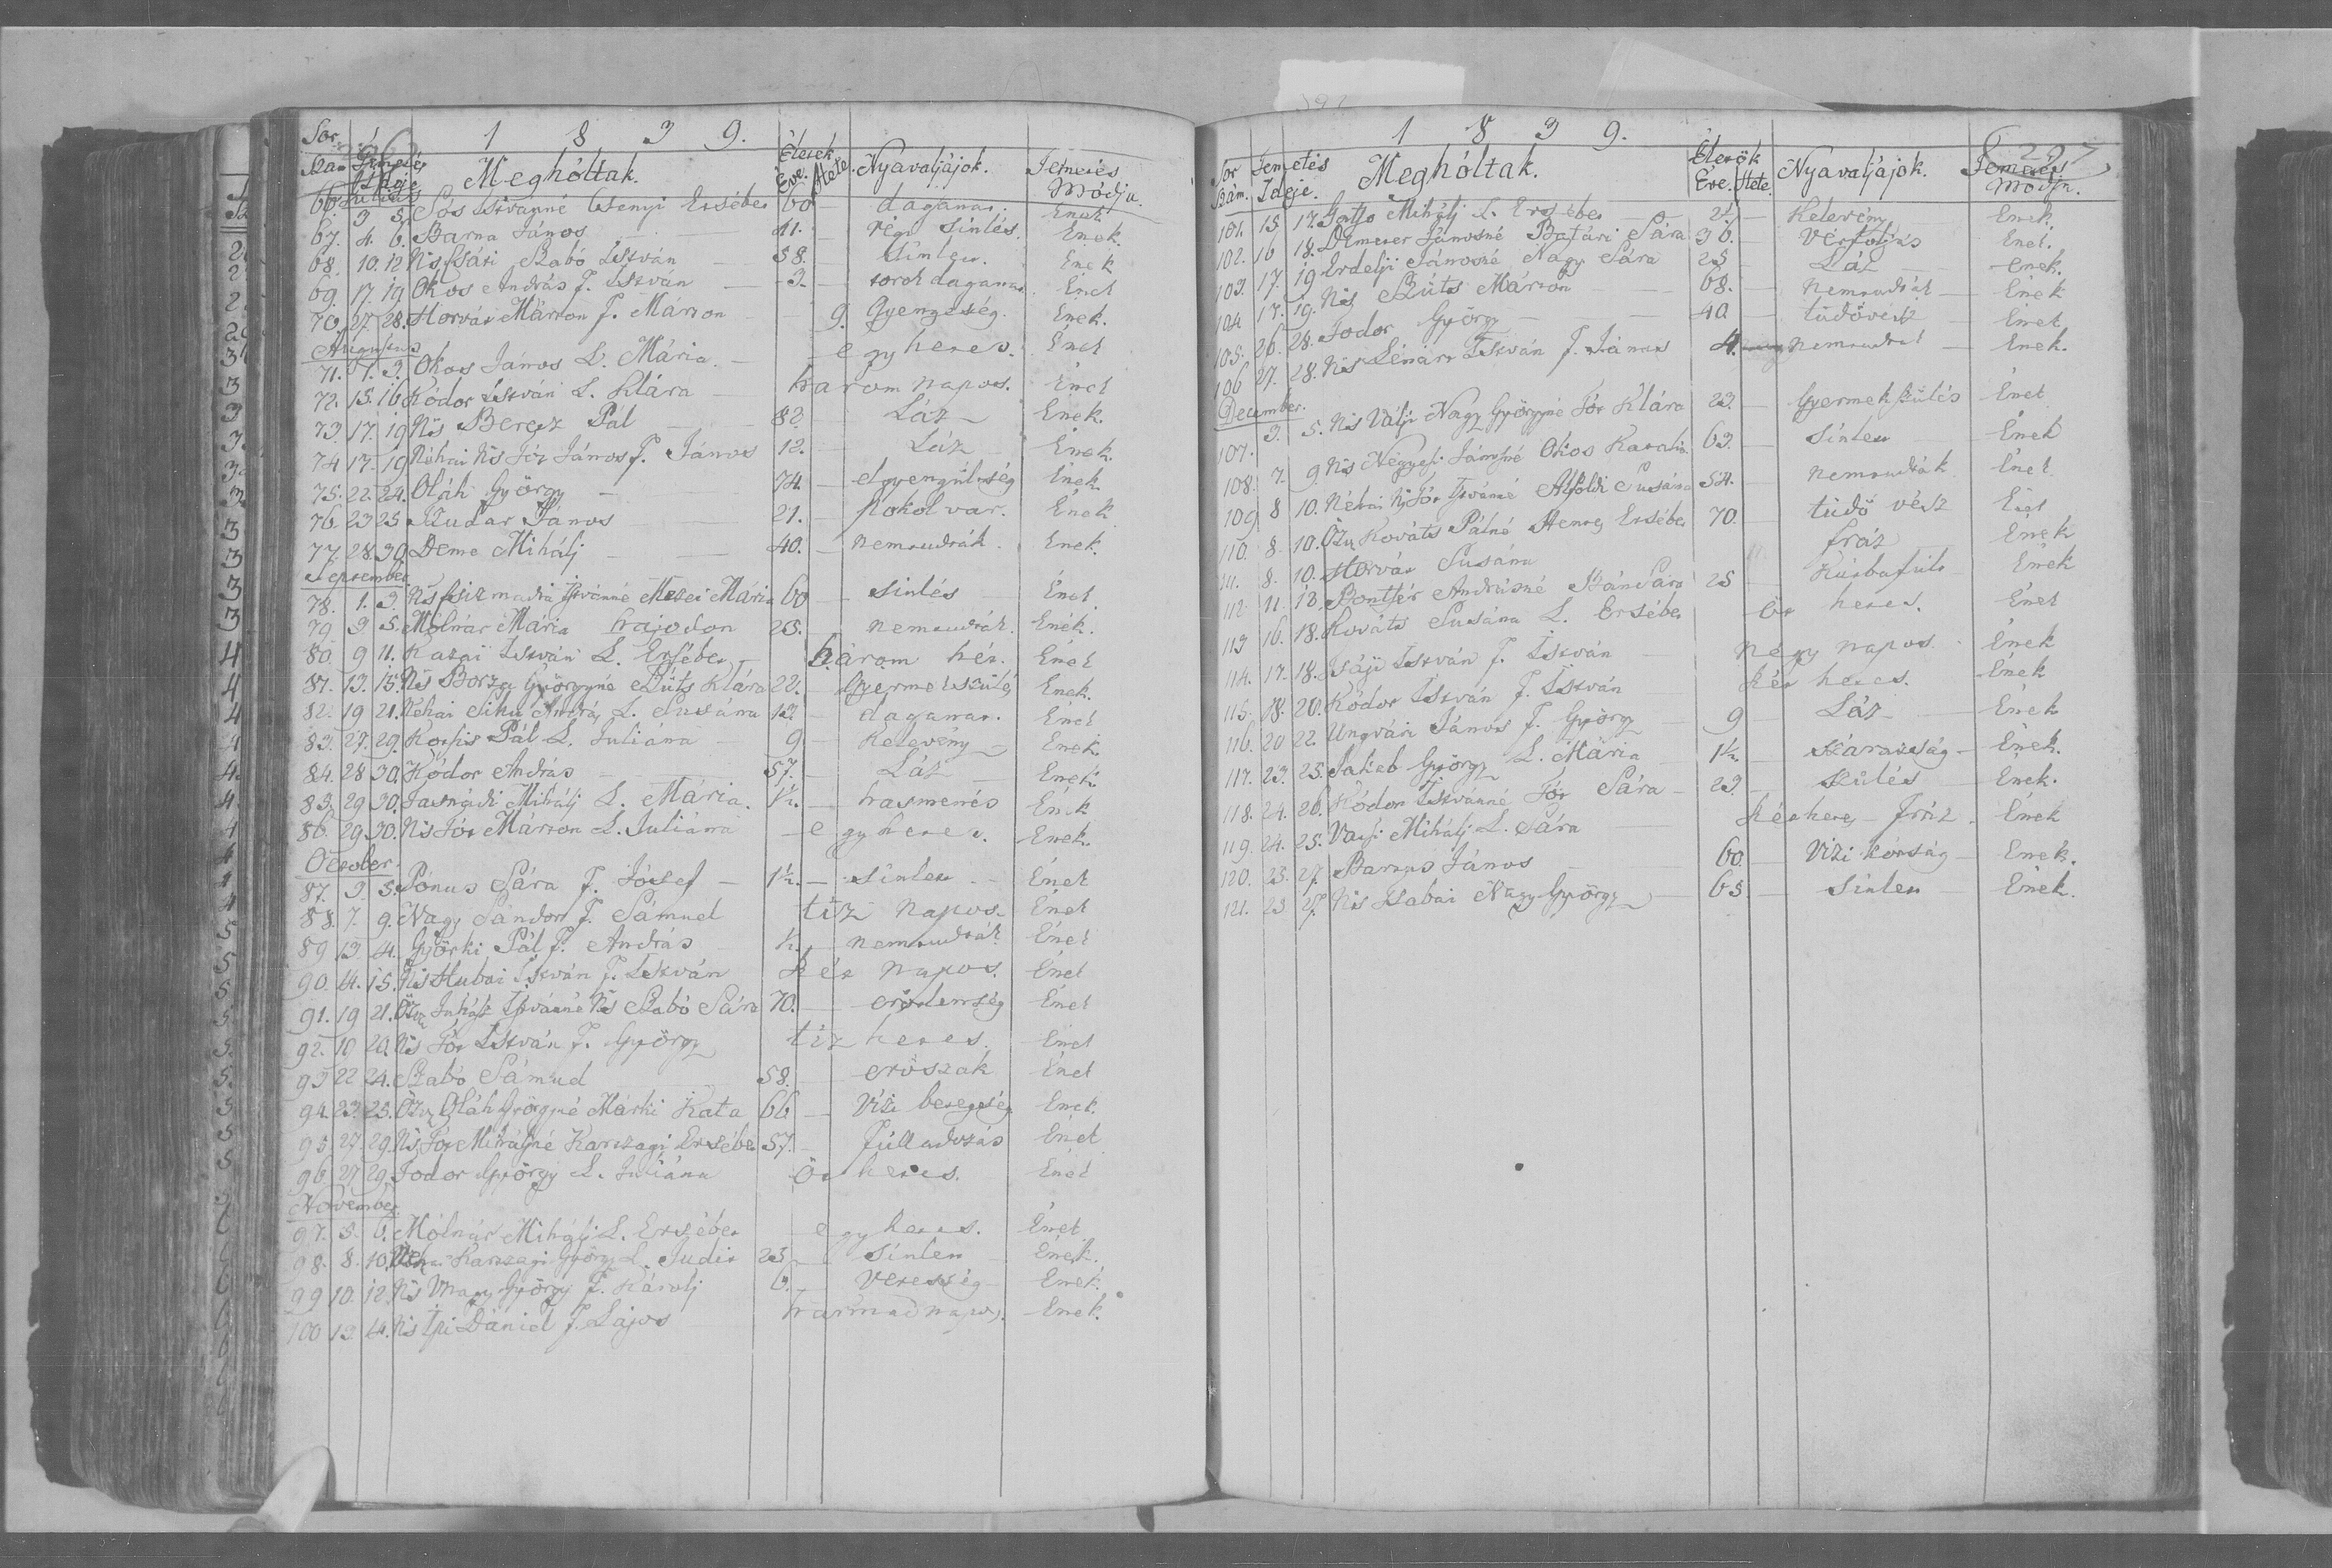 1 8 3 9.
Sor Szám Temetés Ideje Meghóltak. Életek Eve. Hete. Nyavaljájok. Temetés Módja.
Julius
66. 3 5. Sós Istvanné Ersébet 60 daganat. Ének.
67. 4. 6. Barna János 41. régi sinlés. Ének.
68. 10. 12 Szabó István 58. Sinlett. Ének
69. 17. 19 Okos András F. István 3. torok daganat. Ének
70. 27. 28. Horvát Márton F. Márton 9. Gyengeség. Ének.
Augustus
71. 1. 3. Okos János L. Mária. egy hetes. Ének
72. 15. 16 Kódor István L. Klára három napos. Ének
73. 17. 19 Ns Beretz Pál 82. Láz Ének.
74 17. 19 Néhai Ns Tót János F. János 12. Láz Ének.
75. 22. 24. Oláh György 74. elgyengülség Ének.
76. 23 25 János 21. pokol var. Ének
77. 28. 30. Deme Mihálj 40. nem tudták. Ének.
September
78. 1. 3. Ns Csizmadia Istvánné Mezei Mária 60 sinlés Ének.
79. 3 5. Mólnár Mária hajadon 25. nem tudták. Ének.
80. 9 11. Kazai István L. Ersébet három hét. Ének
81. 13. 15. Ns Borza Györgyné Szüts Klára 22. Gyermekszülés Ének.
82. 19 21. Néhai Sika András L. Susánna daganat. Ének
83. 27. 29. Kotsis Pál L. Juliána 9 Kelevény Ének.
84. 28 30. Kódor András 57. Láz Ének.
85. 29 30. Tasnádi Mihálj L. Mária. 1½. hasmenés Ének
86. 29 30. Ns Tót Márton L. Juliánna egy hetes. Ének.
October.
87. 3 5. Pónus Sára F. Jósef 1½. sinlett Ének
88. 7. 9. Nagy Sándor F. Sámuel tiz napos. Ének
89 13. 14. Györki Pál F. András ½. nem tudták Ének
90. 14. 15. Ns Hubai István F. István két napos. Ének
91. 19 21. Özv Juhász Istvánné Ns Szabó Sára 70. erötlenség Ének
92. 19 20. Ns Tót István F. György tiz hetes. Ének
93 22 24. Szabó Sámuel 58. erőszak Ének
94. 23. 25. Özv Oláh Györgyné Márki Kata 66 Vizi betegség Ének.
95. 27. 29. Ns Tót Mihájné Karczagi Ersébet 57. Fúlladozás Ének
96. 27 29. Fodor György L. Juliána öt hetes. Ének
November
97. 5. 6. Mólnár Mihálj L. Ersébet egy hetes. Ének
98. 8. 10. Karczagi György L. Judit 23 sinlett Ének.
99 10. 12. Ns Nagy György F. Károlj 6. Veresség Ének.
100 13. 14. Ns Dániel F. Lajos harmad napos. Ének.
1 8 3 9.
297
Sor Szám. Temetés Ideje. Meghóltak. Életök Éve. Hete. Nyavaljájok. Temetés Módja.
101. 15. 17. Mihálj L. Ersébet Kelevény Ének.
102. 16 18. Demeter Jánosné Batári Sára 36. Vérfolyás Ének.
103. 17. 19 Erdélji Jánosné Nagy Sára 25 Láz Ének.
104 17. 19. Ns Szüts Márton 68. nem tudták Ének
105. 26. 28. Fodor György 40 tüdővész Ének
106 27. 28. Ns Lénárt István F. János 4. nem tudták Ének.
December.
107. 3. 5. Ns Válji Nagy Györgyné Tót Klára 23. Gyermek szülés Ének
108. 7. 9. Ns Négyesi Jánosné Okos Katalin 63. Sinlett Ének
109 8 10. Néhai Ns Tót Istvánné Alföldi Susána 54. nem tudták Ének
110. 8. 10. Özv Kováts Pálné Ersébet 70. tüdő vész Ének
111. 8. 10. Horvát Susána fráz Ének
112. 11. 13. Andrásné Sára 25 Ének
113 16. 18. Kováts Susána L. Ersébet öt hetes. Ének
114. 17. 18. István F. István négy napos. Ének
115. 18. 20. Kódor István F. István két hetes. Ének
116. 20 22. Ungvári János F. György 9 Láz Ének
117. 23. 25. Jakab György L. Mária 1½. szárazság Ének.
118. 24. 26. Kódor Istvánné Tót Sára 23. szülés Ének.
119. 24. 25. Mihálj L. Sára két hetes fráz Ének
120. 25. 27. János 60. Vizi kórság Ének.
121. 25 27. Ns Szabai Nagy György 65. Sinlett Ének.